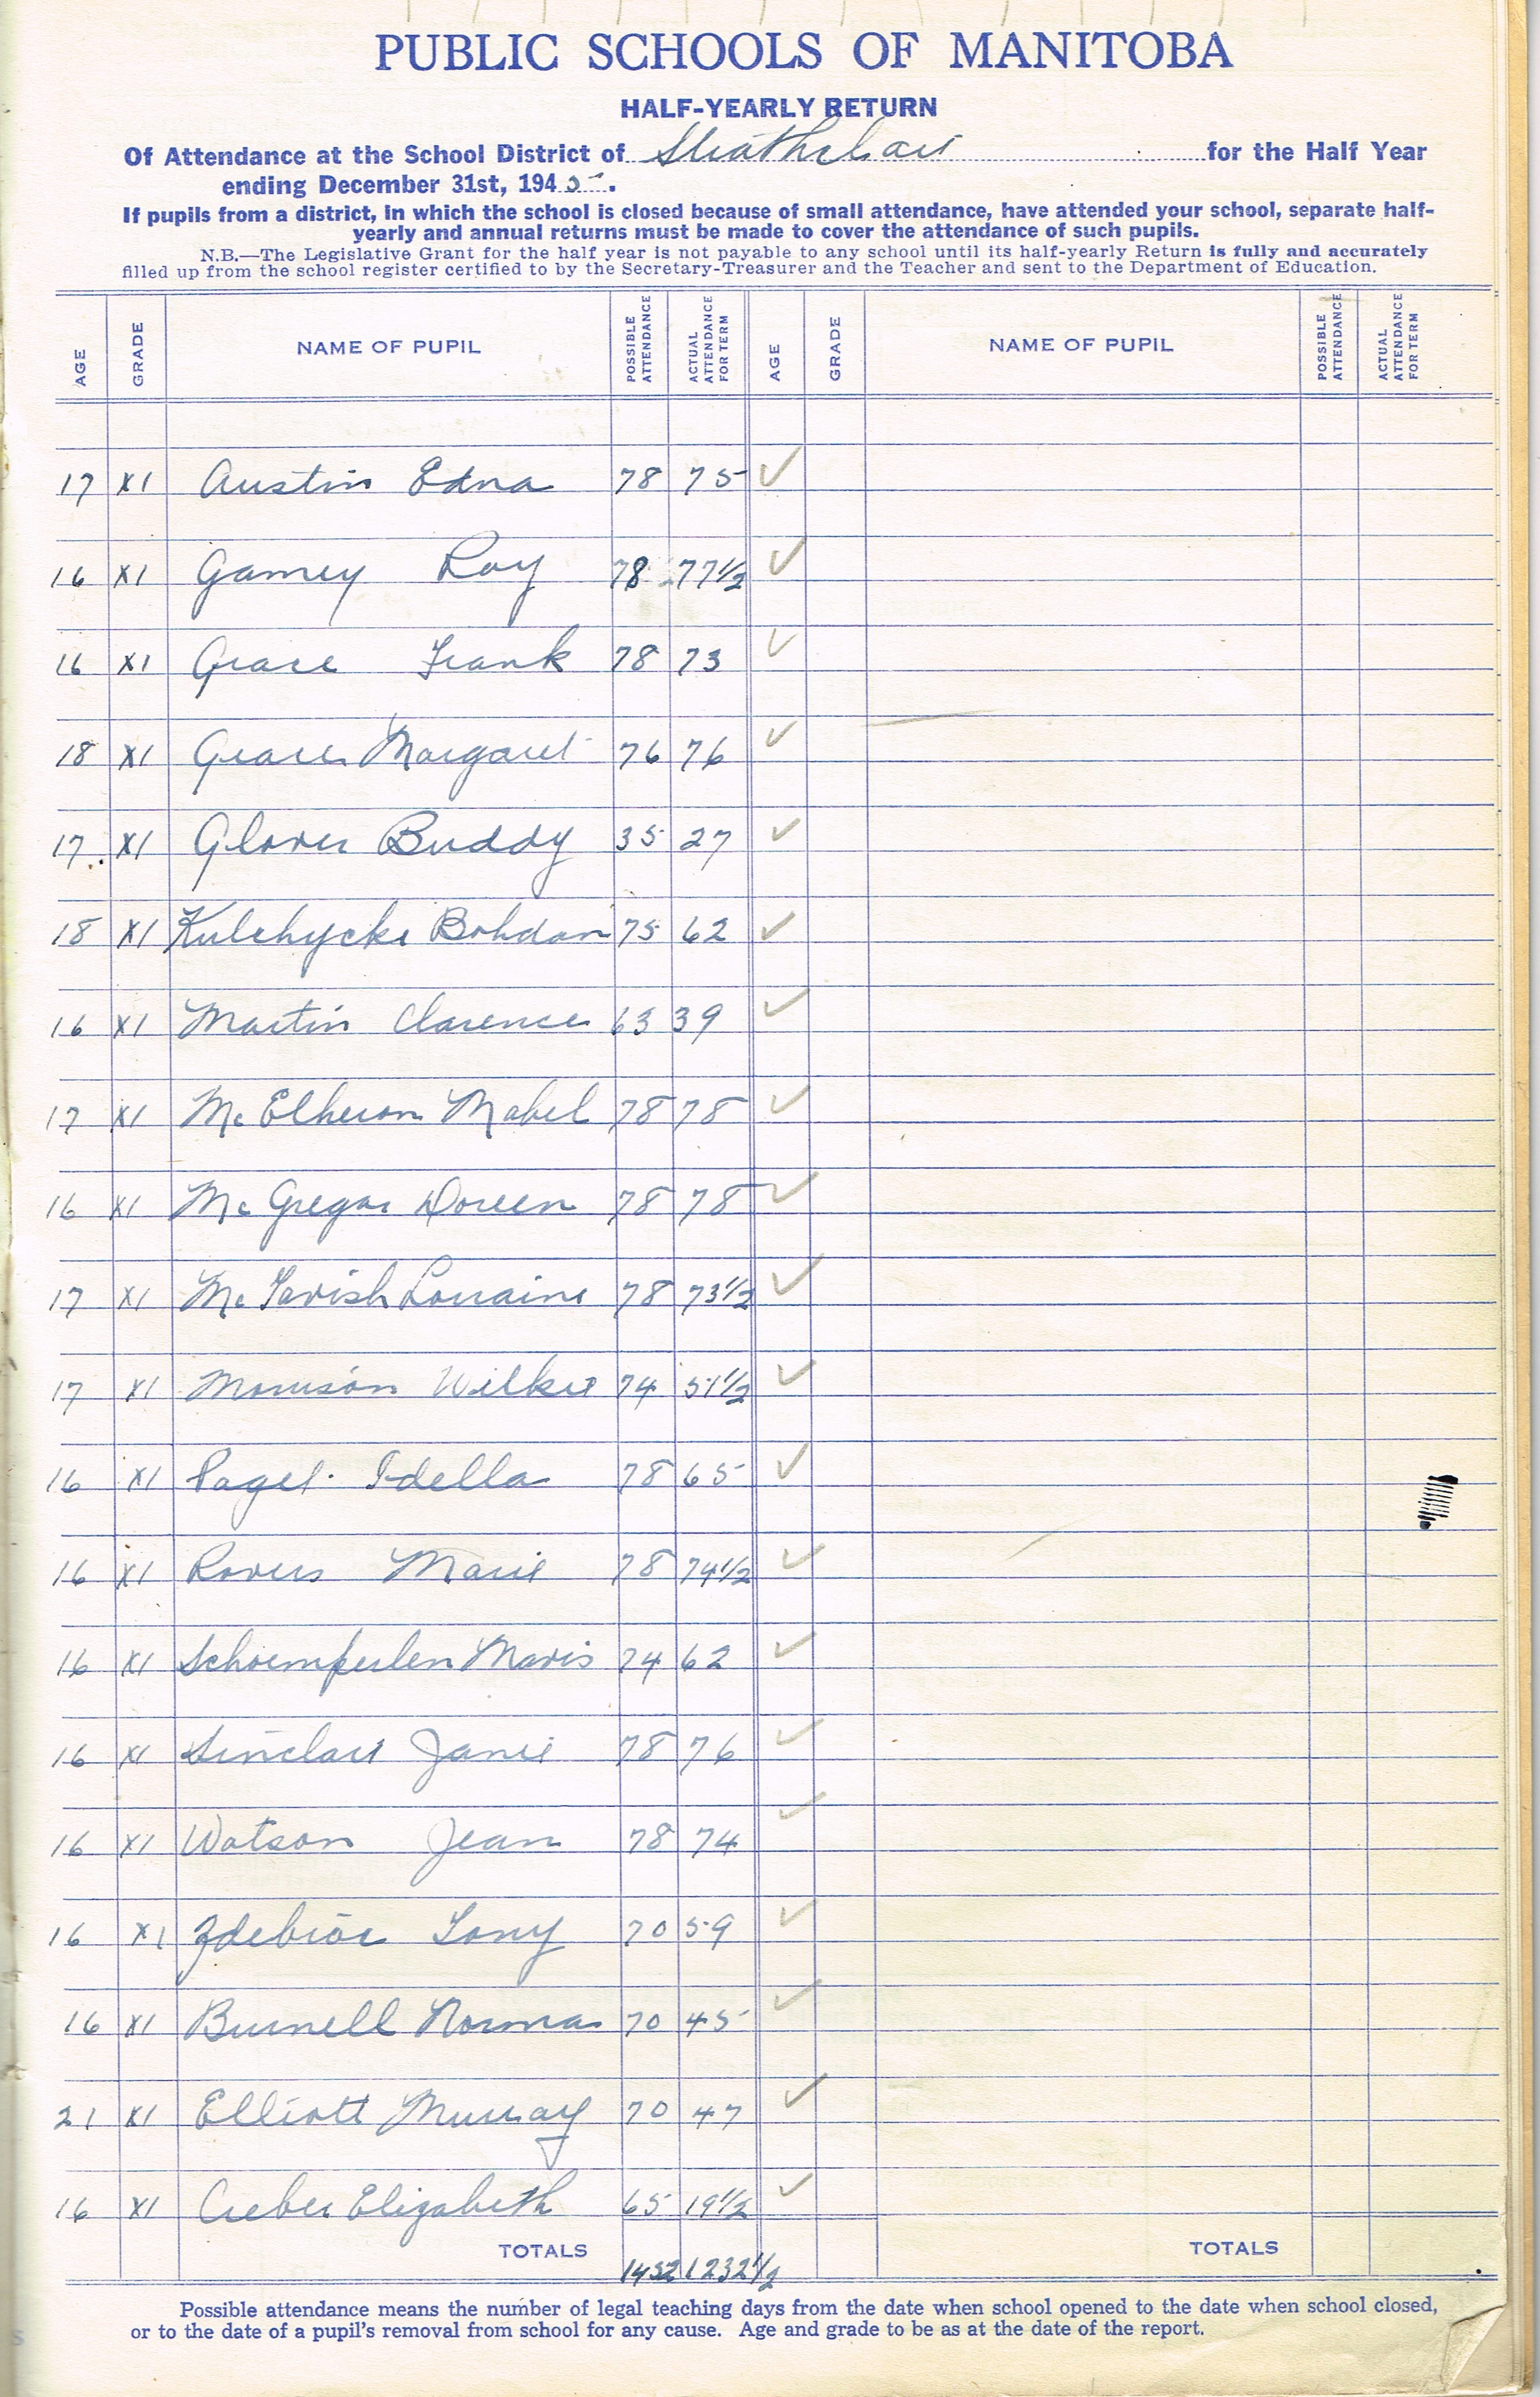 PUBLIC SCHOOLS OF MANITOBA
HALF-YEARLY RETURN
Of Attendance at the School District of Strathclair for the Half Year
ending December 31st, 1945.
If pupils from a district, in which the school is closed because of small attendance, have attended your school, separate half-
yearly and annual returns must be made to cover the attendance of such pupils.
N.B.—The Legislative Grant for the half year is not payable to any school until its half-yearly Return is fully and accurately
filled up from the school register certified to by the Secretary-Treasurer and the Teacher and sent to the Department of Education.
AGE GRADE NAME OF PUPIL POSSIBLE ATTENDANCE ACTUAL ATTENDANCE FOR TERM AGE GRADE NAME OF PUPIL POSSIBLE ATTENDANCE ACTUAL ATTENDANCE FOR TERM
17 XI Austin Edna 78 75 ✓
16 XI Gamey Roy 78 77 1/2 ✓
16 XI Grace Frank 78 73 ✓
18 XI Grace Margaret 76 76 ✓
17 XI Glover Buddy 35 27 ✓
18 XI Kulchycki Bohdan 75 62 ✓
16 XI Martin Clarence 63 39 ✓
17 XI McElheron Mabel 78 78 ✓
16 XI McGregor Doreen 78 78 ✓
17 XI McTavish Lorraine 78 73 1/2 ✓
17 XI Morrison Wilkie 74 51 1/2 ✓
16 XI Paget Idella 78 65 ✓
16 XI Rovers Marie 78 74 1/2 ✓
16 XI Schoemperlen Mavis 74 62 ✓
16 XI Sinclair Janie 78 76 ✓
16 XI Watson Jean 78 74 ✓
16 XI Zdebiac Tony 70 59 ✓
16 XI Burnell Norma 70 45 ✓
21 XI Elliott Murray 70 47 ✓
16 XI Creber Elizabeth 65 19 1/2 ✓
TOTALS 1452 1232 1/2 TOTALS
Possible attendance means the number of legal teaching days from the date when school opened to the date when school closed,
or to the date of a pupil's removal from school for any cause. Age and grade to be as at the date of the report.